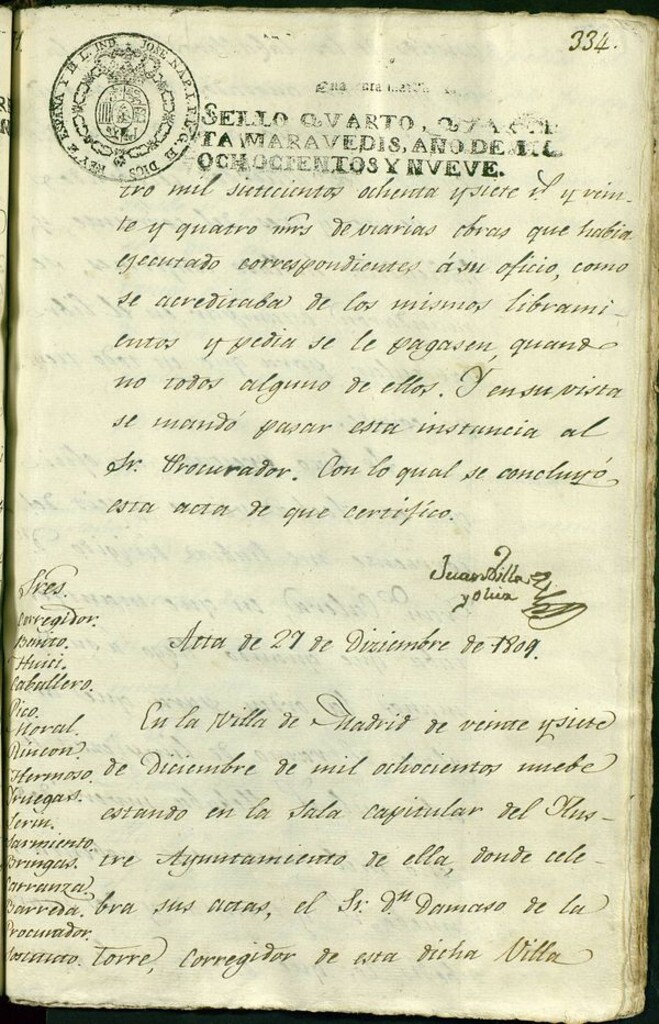 334.
JOSE NAP. I. P. L. G. D. DIOS REY D ESPAÑA Y D L. IND.
SELLO QVARTO, QVAREN
TA MARAVEDIS, AÑO DE MIL
OCHOCIENTOS Y NVEVE.
tro mil setecientos ochenta y siete r.s y vein-
te y quatro mrs de varias obras que habia
ejecutado correspondientes á su oficio, como
se acreditaba de los mismos librami-
entos y pedia se le pagasen, quando
no todos alguno de ellos. Y en su vista
se mandó pasar esta instancia al
Sr. Procurador. Con lo qual se concluyó
esta acta de que certifico.
Juan Villa
y Olier
Acta de 27 de Diziembre de 1809.
Sres.
Corregidor.
Benito.
Thuici.
Caballero.
Pico.
Moral.
Rincon.
Hermoso.
Sarmiento.
Bringas.
Carranza.
Barreda.
Procurador.
En la Villa de Madrid de veinte y siete
de Diciembre de mil ochocientos nuebe
estando en la Sala Capitular del Ilus-
tre Ayuntamiento de ella, donde cele-
bra sus actas, el Sr. Dn Damaso de la
Torre, Corregidor de esta dicha Villa